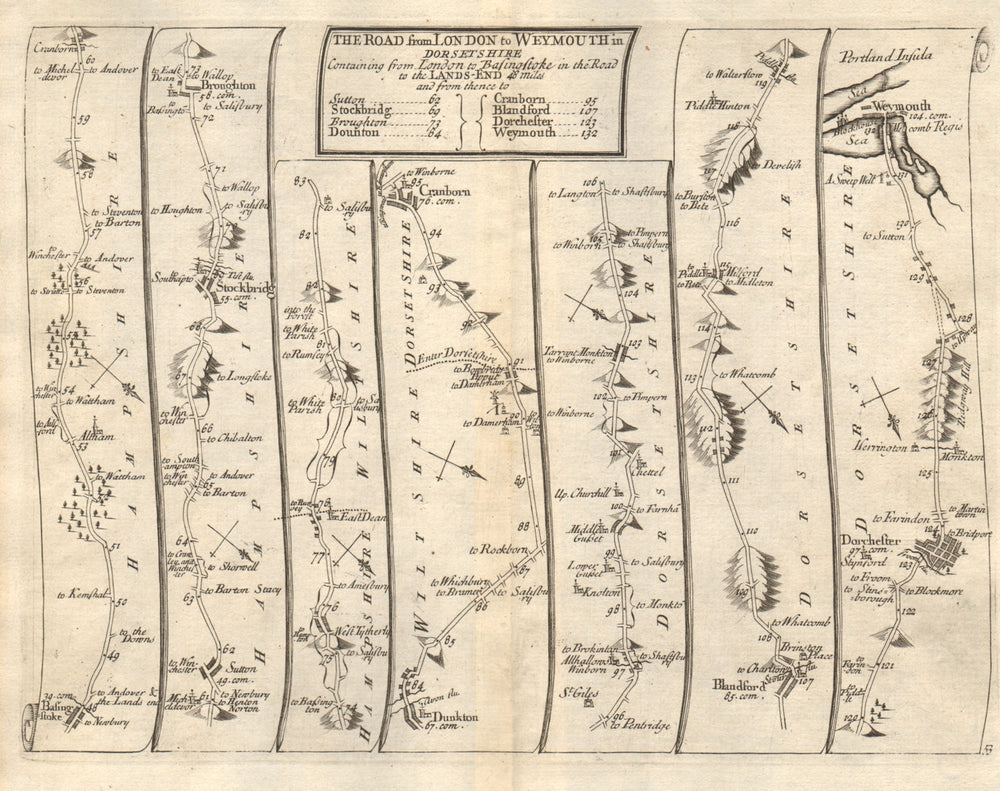 THE ROAD from LONDON to WEYMOUTH in
DORSETSHIRE
Containing from London to Basingstoke in the Road
to the LANDS-END 48 miles
and from thence to
Sutton 62
Stockbridg 69
Broughton 73
Dounton 84
Cranborn 95
Blandford 107
Dorchester 123
Weymouth 132
Cranborn
60
to Micheldevor
to Andover
59
58
to Steventon
to Barton
57
to Winchester
to Andover
56
to Strutton
to Steventon
55
54
to Winchester
to Waltham
to Allsford
Altham
53
to Waltham
51
to Kemshal
50
to the Downs
49
to Andover &
the Lands end
39. com.
Basingstoke
48
to Newbury
HAMPSHIRE
to East Dean
73
to Wallop
Broughton
58. com.
to Bassington
to Salisbury
72
71
to Wallop
to Houghton
to Salisbury
to Southapto
Test flu.
Stockbridg
55. com.
68
67
to Longstoke
to Winchester
66
to Chibalton
to Southampton
to Winchester
to Andover
65
to Barton
64
to Shorwell
to Barton Stacy
63
62
to Winchester
Sutton
49. com.
Micheldevor
61
to Newbury
to Hunton
Norton
HAMPSHIRE
83
to Salisbury
82
81
into the Forest
to White Parish
to Rumsey
to White Parish
80
to Salisbury
79
78
to Rumsey
East Dean
77
to Amesbury
76
West Tytherly
75
to Salisbury
to Bassington
74
WILSHIRE
HAMPSHIRE
to Winborne
95
Cranborn
76. com.
94
93
92
Enter Dorsetshire
91
to Damerham
90
to Damerham
to Wilton
89
88
to Rockborn
87
to Whichbury
to Brumer
86
to Salisbury
85
84
Avon flu.
Dunkton
67. com.
DORSETSHIRE
WILTSHIRE
106
to Langton
to Shaftsbury
to Pimpern
105
to Winborn
to Shaftsbury
104
103
Tarrant Monkton
to Winborne
to Pimpern
102
to Winborne
101
Chettel
Up. Churchill
100
to Farnha
Middle Gusset
99
to Salisbury
Lower Gusset
Knolton
98
to Monkto
to Brokinton
Allhallows
Winborn
to Shaftsbury
97
St. Giles
96
to Pentridge
DORSETSHIRE
Piddle
to Walterflow
119
Piddle Hinton
118
to Develish
117
to Burston
to Bete
116
115
to Piddle
to Bete
Milford
to Midleton
114
113
to Whatcomb
112
110
109
to Whatcomb
108
Brinston
Place
to Charlton
Stour flu.
Blandford
107
85. com.
DORSETSHIRE
Portland Insula
Sea
Weymouth
104. com.
Blockhouse
132
Melcomb Regis
Sea
A Sweep Well
131
130
to Sutton
129
128
to Upway
127
126
Redgway Hill
Herrington
Monkton
125
to Martin town
to Farindon
124
to Bridport
Dorchester
97. com.
Stynford
Froom
123
to Froom
to Stinsborough
to Blockmore
122
to Farindon
121
to Piddle
120
DORSETSHIRE